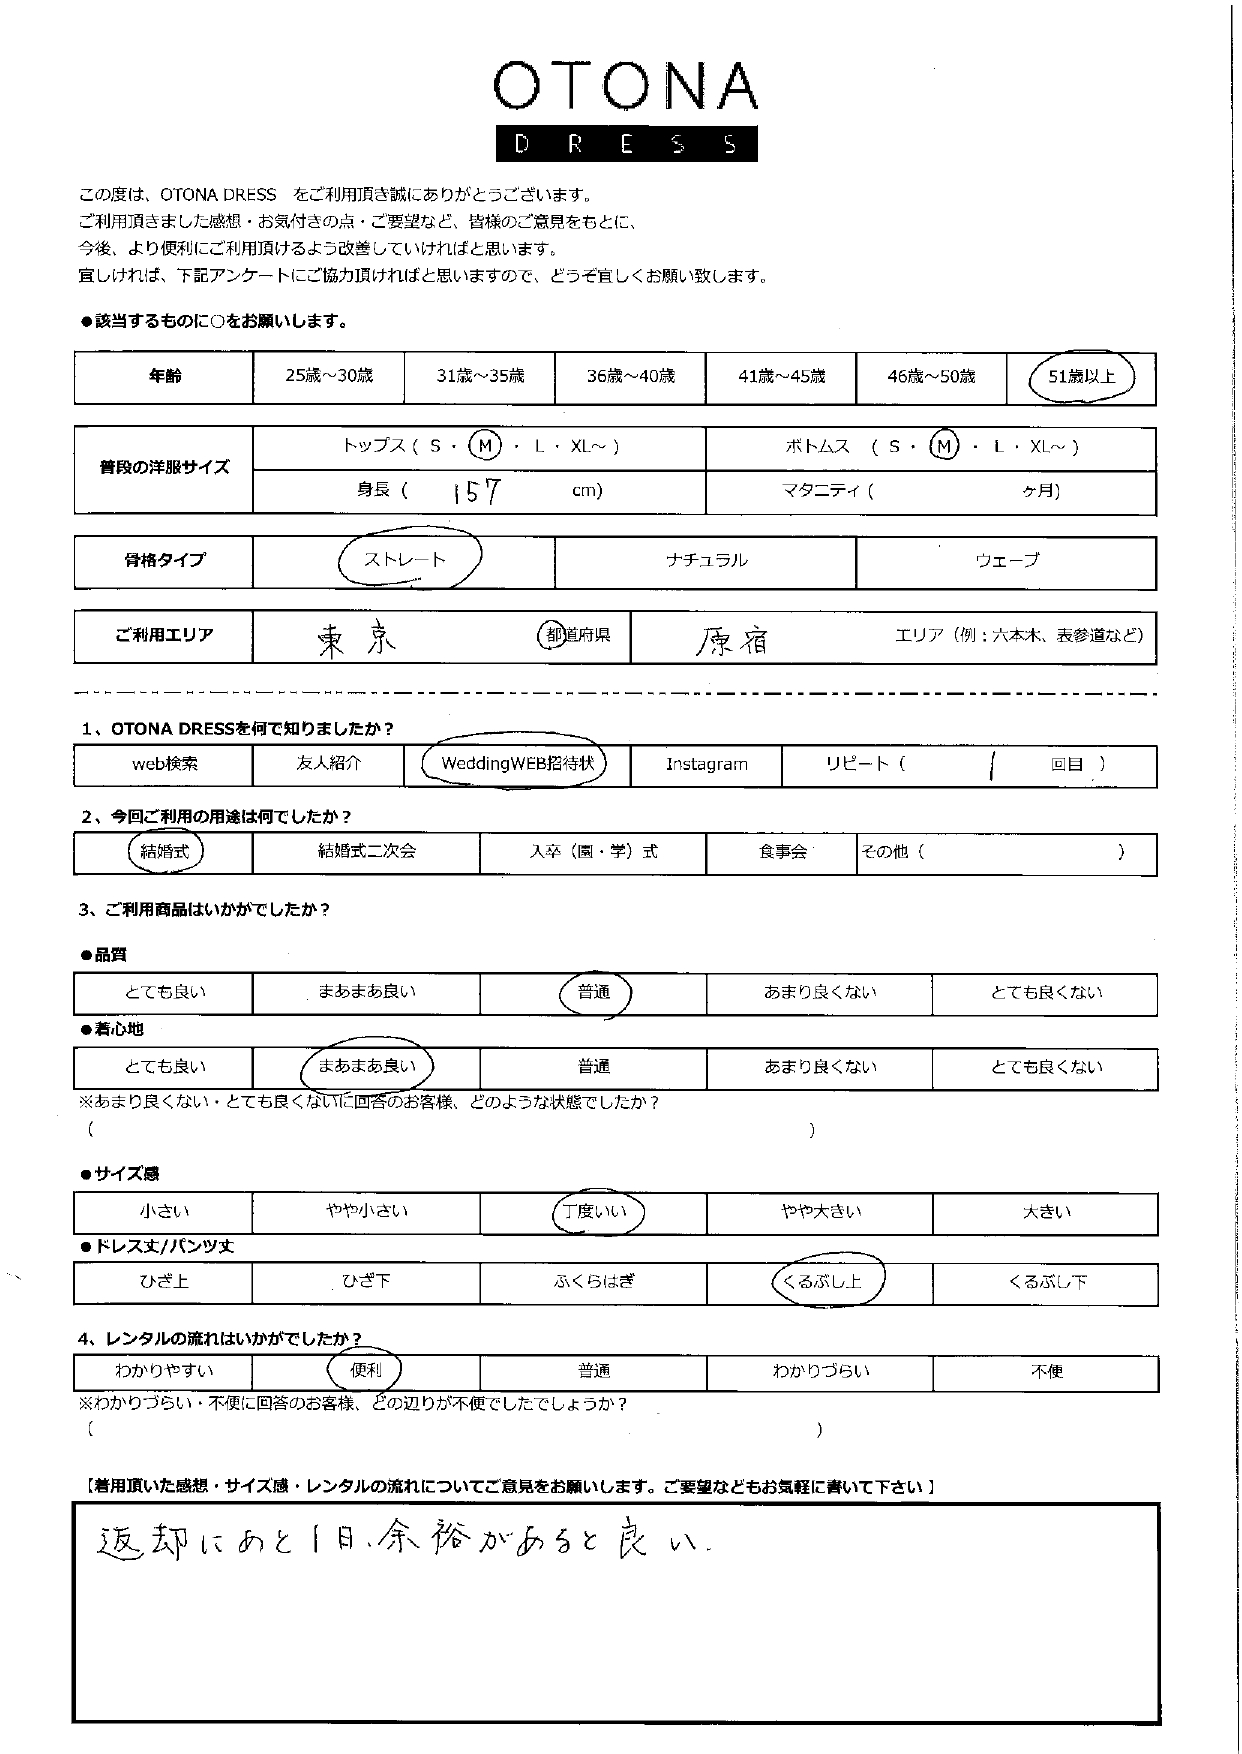 OTONA
DRESS
この度は、OTONA DRESS をご利用頂き誠にありがとうございます。
ご利用頂きました感想・お気付きの点・ご要望など、皆様のご意見をもとに、
今後、より便利にご利用頂けるよう改善していければと思います。
宜しければ、下記アンケートにご協力頂ければと思いますので、どうぞ宜しくお願い致します。
●該当するものに○をお願いします。
年齢 25歳～30歳 31歳～35歳 36歳～40歳 41歳～45歳 46歳～50歳 51歳以上
普段の洋服サイズ トップス ( S ・ M ・ L ・ XL～ ) ボトムス ( S ・ M ・ L ・ XL～ )
身長 ( 157 cm) マタニティ ( ヶ月)
骨格タイプ ストレート ナチュラル ウェーブ
ご利用エリア 東京 都道府県 原宿 エリア（例：六本木、表参道など）
1、OTONA DRESSを何で知りましたか？
web検索 友人紹介 WeddingWEB招待状 Instagram リピート ( 1 回目 )
2、今回ご利用の用途は何でしたか？
結婚式 結婚式二次会 入卒（園・学）式 食事会 その他 ( )
3、ご利用商品はいかがでしたか？
●品質
とても良い まあまあ良い 普通 あまり良くない とても良くない
●着心地
とても良い まあまあ良い 普通 あまり良くない とても良くない
※あまり良くない・とても良くないに回答のお客様、どのような状態でしたか？
( )
●サイズ感
小さい やや小さい 丁度いい やや大きい 大きい
●ドレス丈/パンツ丈
ひざ上 ひざ下 ふくらはぎ くるぶし上 くるぶし下
4、レンタルの流れはいかがでしたか？
わかりやすい 便利 普通 わかりづらい 不便
※わかりづらい・不便に回答のお客様、どの辺りが不便でしたでしょうか？
( )
【着用頂いた感想・サイズ感・レンタルの流れについてご意見をお願いします。ご要望などもお気軽に書いて下さい 】
返却にあと1日、余裕があると良い.